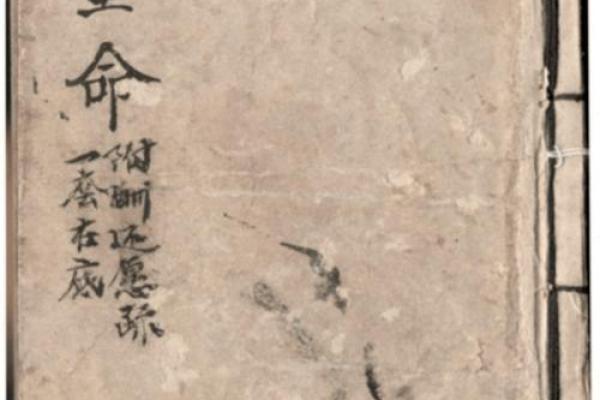 命
附酬还愿疏
一在底